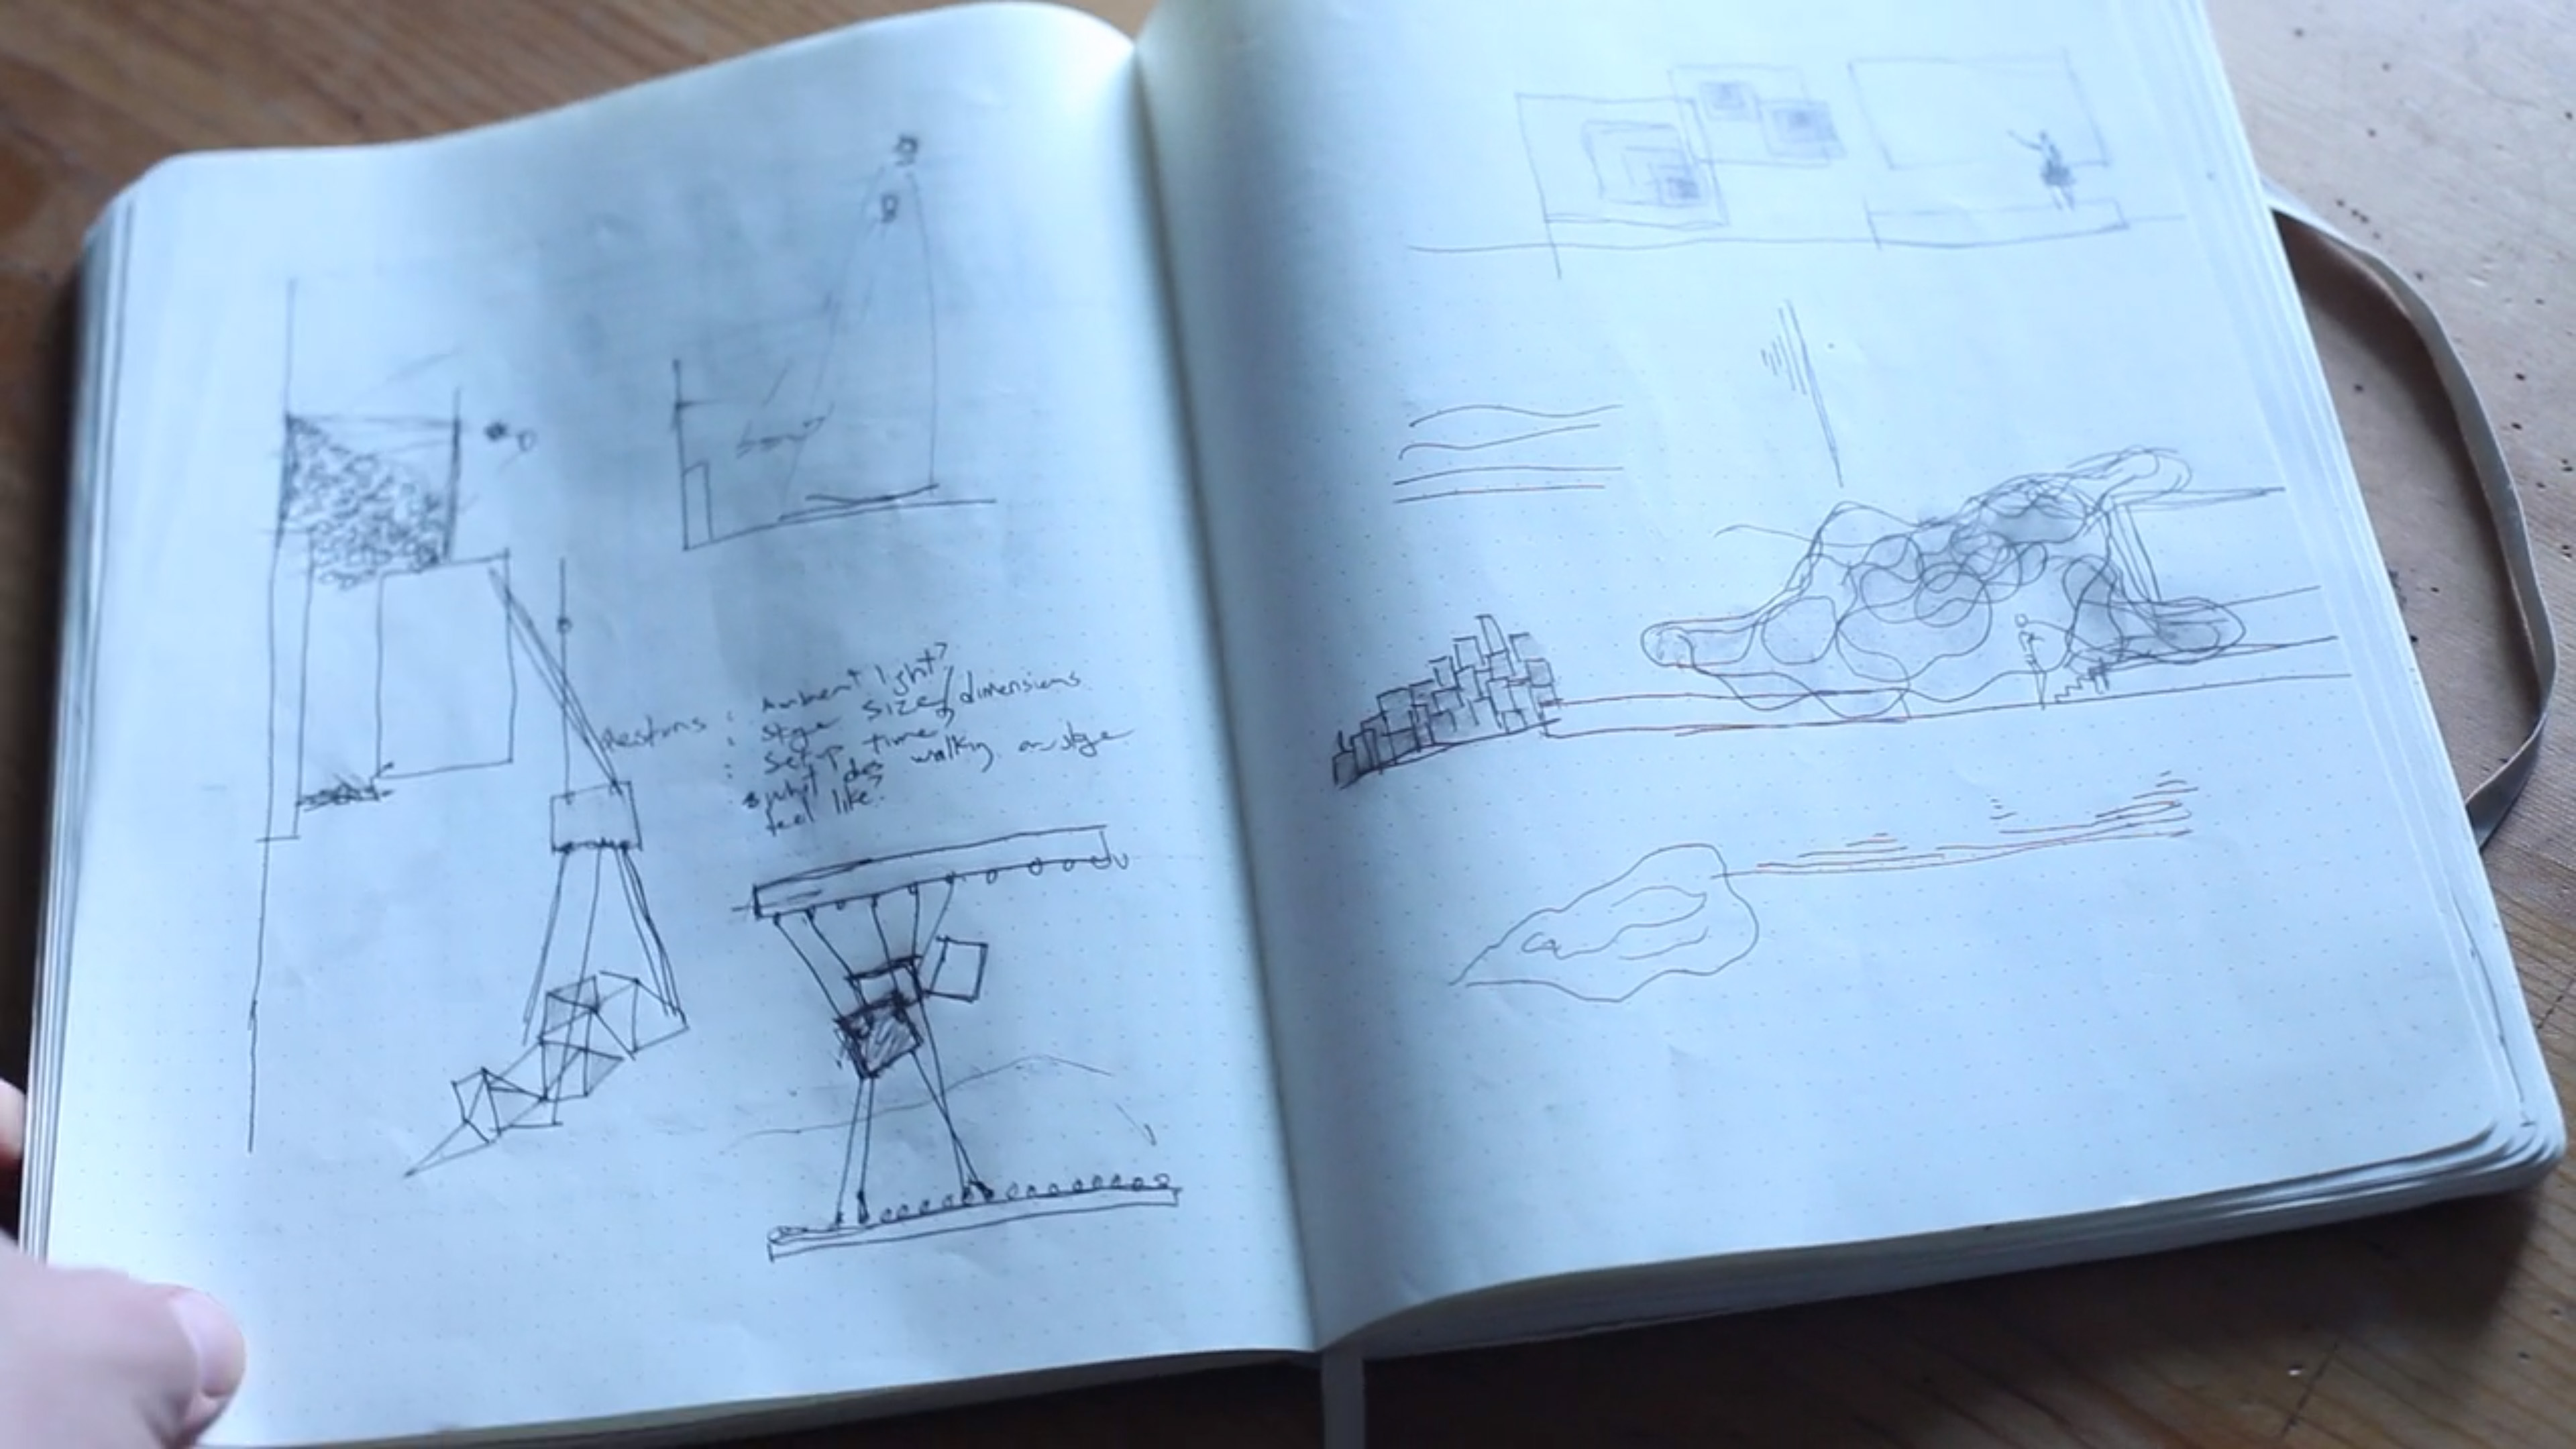 Questions : Ambient light?
: Stge size/dimensions
: Setup time?
: what does walking on stge
feel like?